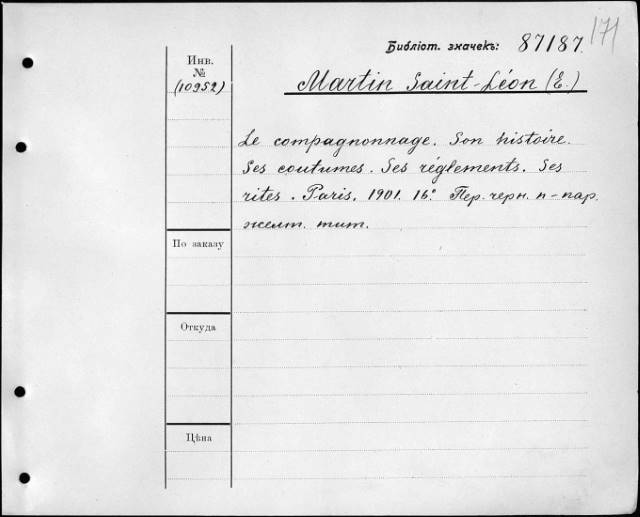 171
Библіот. значекъ: 87187.
Инв.
№
(10952)
Martin Saint-Léon (E.)
Le compagnonnage. Son histoire.
Ses coutumes. Ses réglements. Ses
rites. Paris, 1901. 16º. Пер. черн. п-пар.
желт. тит.
По заказу
Откуда
Цѣна